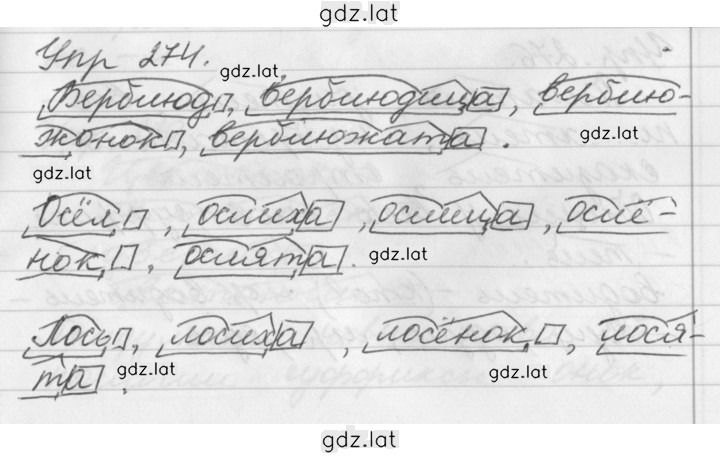 gdz.lat
Упр 274.
gdz.lat
Верблюд, верблюдица, верблю-
жонок, верблюжата.
gdz.lat
gdz.lat
Осёл, ослиха, ослица, ослё-
нок, ослята.
gdz.lat
Лось, лосиха, лосёнок, лося-
та.
gdz.lat
gdz.lat
gdz.lat